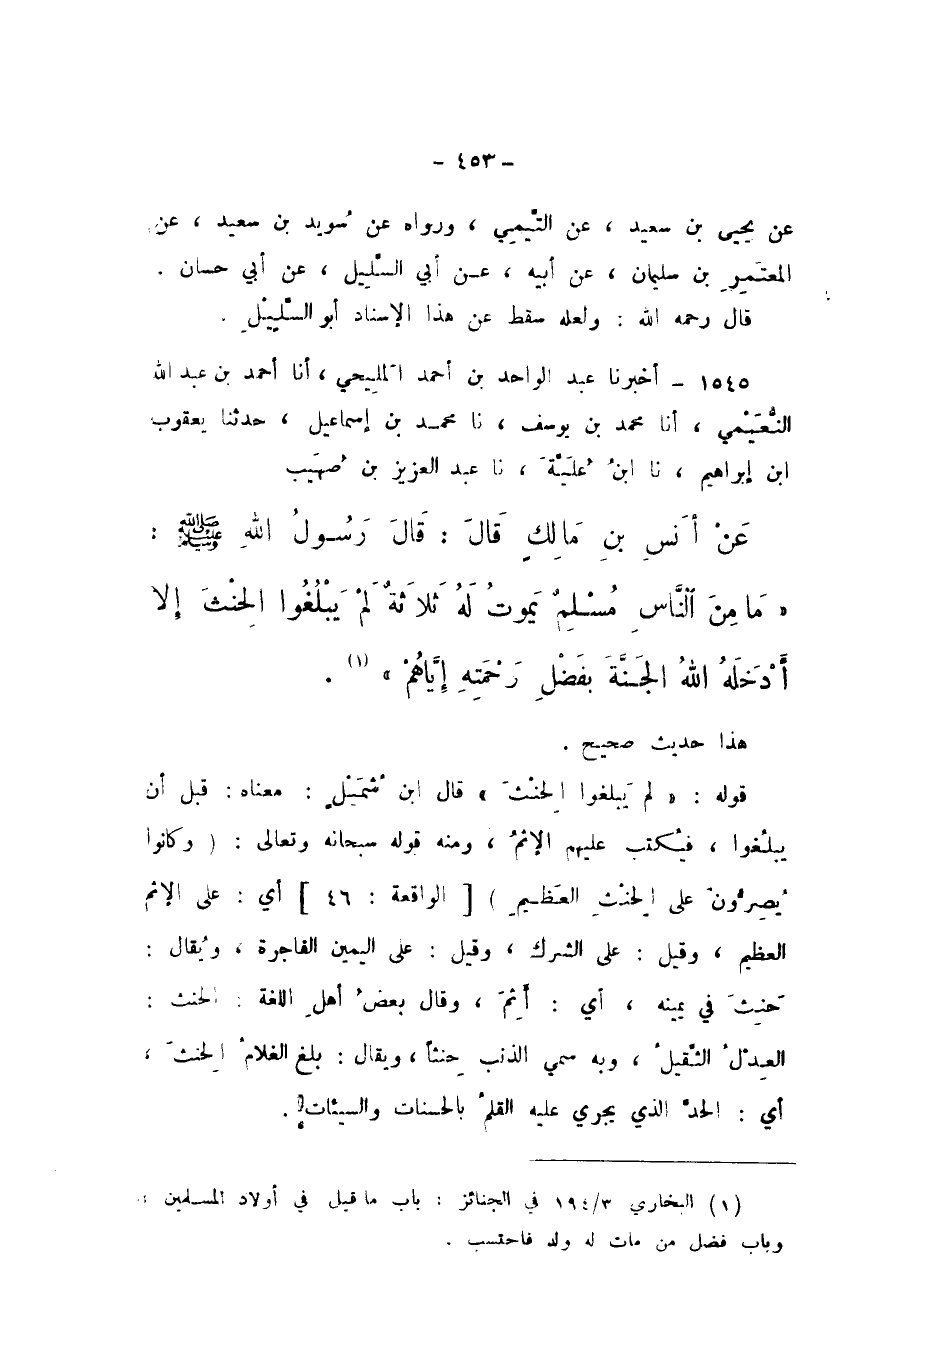 – ٤٥٣ –
عن يحيى بن سعيد ، عن التَّيمي ، ورواه عن سُويد بن سعيد ، عن
المعتَمِر بن سليمان ، عن أبيه ، عـن أبي السَّليل ، عن أبي حسان .
قال رحمه الله : ولعله سقط عن هذا الإسناد أبو السَّلِيْل .
١٥٤٥ – أخبرنا عبد الواحد بن أحمد المَليحي ، أنا أحمد بن عبد الله
النُّعَيْمي ، أنا محمد بن يوسف ، نا محمـد بن إسماعيل ، حدثنا يعقوب
ابن إبراهيم ، نا ابنُ عُلَيَّةَ ، نا عبد العزيز بن صُهَيب
عَنْ أَنَسِ بنِ مَالِكٍ قَالَ : قَالَ رَسُـولُ اللهِ ﷺ :
« مَا مِنَ النَّاسِ مُسْـلِمٌ يَموتُ لَهُ ثَلاثَةٌ لَمْ يَبْلُغُوا الحِنْثَ إِلا
أَدْخَلَهُ اللهُ الجَـنَّةَ بفَضْلِ رَحْمَتِهِ إيَّاهُمْ » (١) .
هذا حديث صحيح .
قوله : « لم يَبلغوا الحِنْثَ » قال ابن شُمَيْل : معناه : قبل أن
يبلُغوا ، فيُكتب عليهم الإثمُ ، ومنه قوله سبحانه وتعالى : ( وكانوا
يُصِرُّونَ على الحِنْثِ العَظـيمِ ) [ الواقعة : ٤٦ ] أي : على الإثم
العظيم ، وقيل : على الشرك ، وقيل : على اليمين الفاجرة ، ويُقال :
حَنِثَ في يمينه ، أي : أَثِمَ ، وقال بعضُ أهلِ اللغة : الحنث :
العِدلُ الثَّقيلُ ، وبه سمي الذنب حِنثاً ، ويقال : بلغ الغلامُ الحِنثَ ،
أي : الحدَّ الذي يجري عليه القلمُ بالحسنات والسيئات .
(١) البخاري ٣/١٩٤ في الجنائز : باب ما قيل في أولاد المسـلمين ،
وباب فضل من مات له ولد فاحتسب .